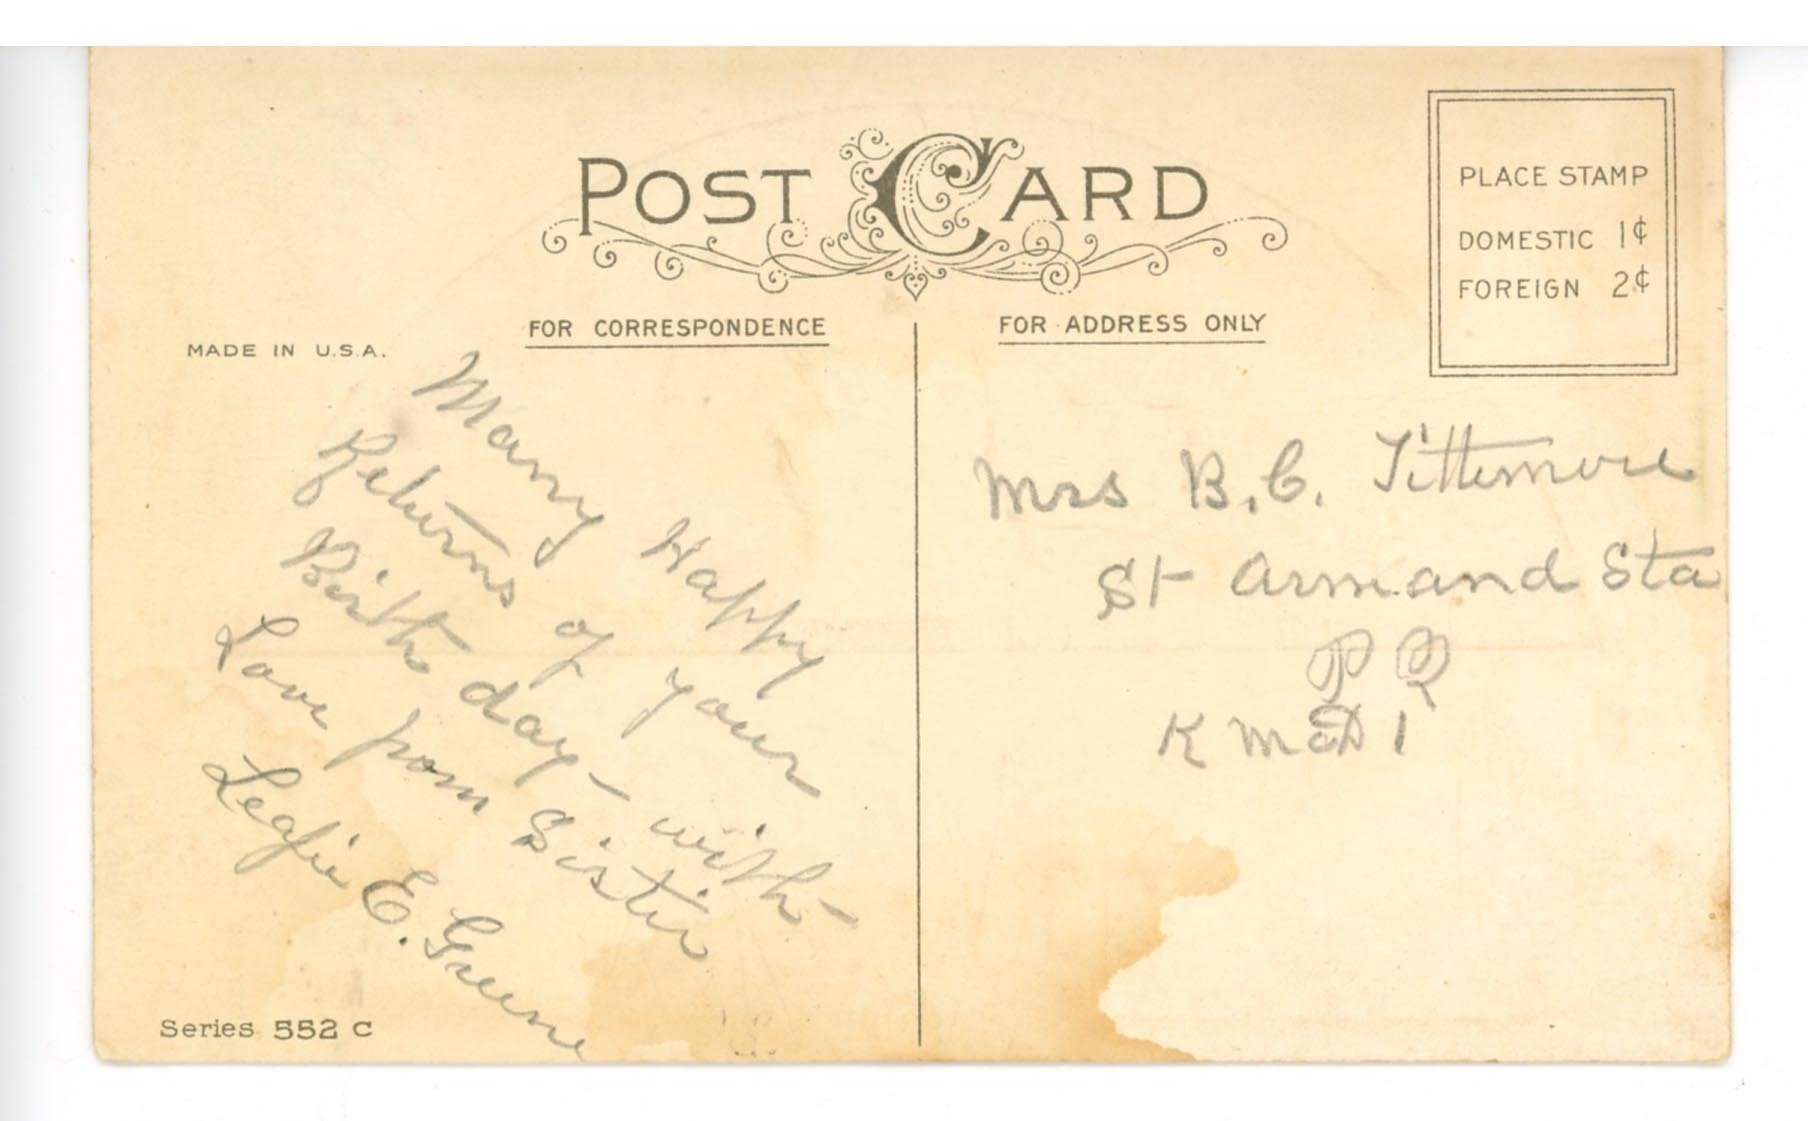 POST CARD
PLACE STAMP
DOMESTIC 1¢
FOREIGN 2¢
FOR CORRESPONDENCE
FOR ADDRESS ONLY
MADE IN U.S.A.
Many Happy
Returns of your
Birth day - with -
Love from Sister
E. Greene
Series 552 C
Mrs B. C. Tittemore
St Armand Sta
P Q
1